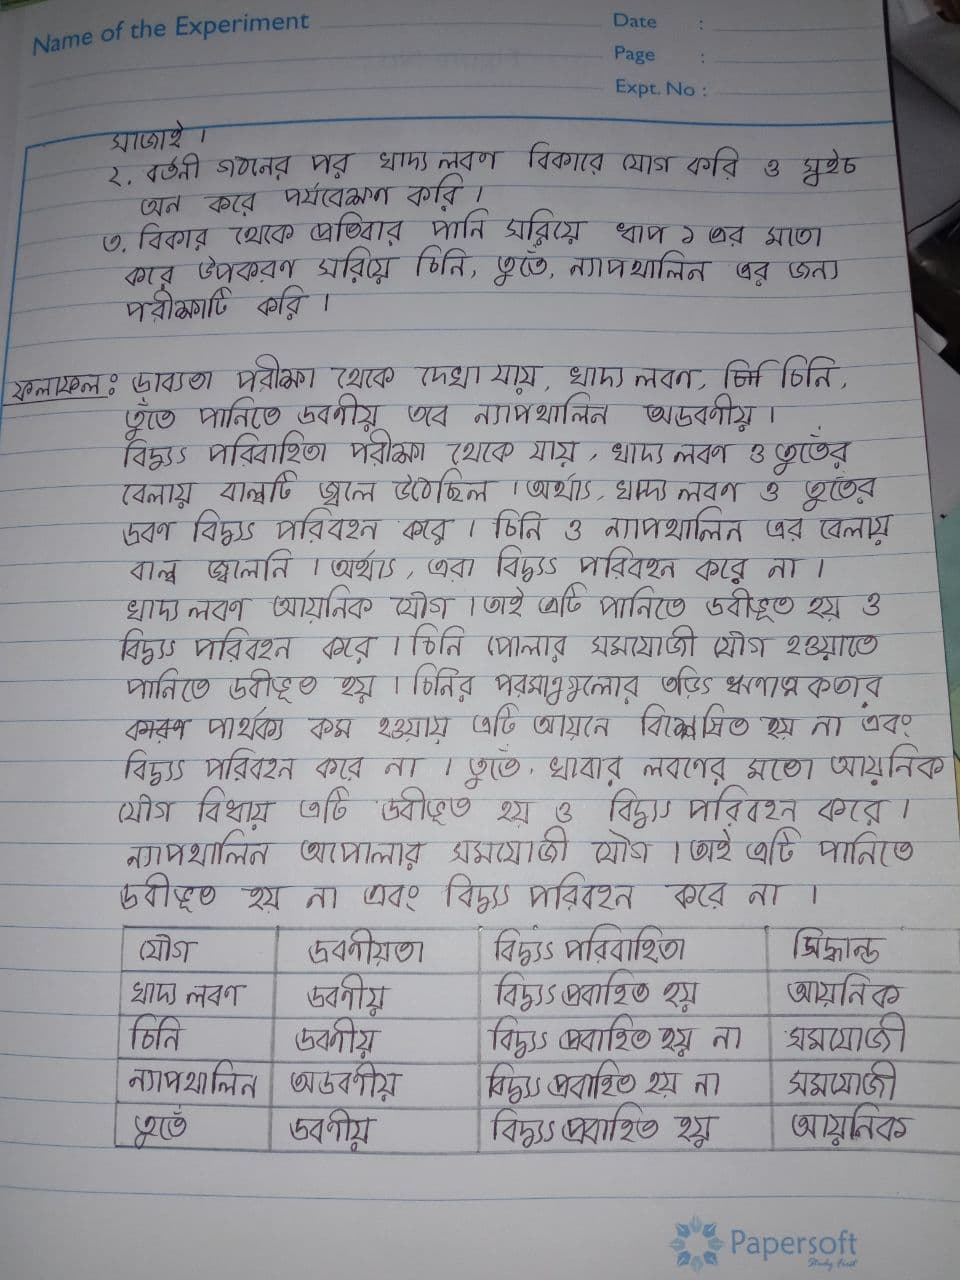 Name of the Experiment
Date :
Page :
Expt. No :
সাজাই।
২. বর্তনী গঠনের পর খাদ্য লবণ বিকারে যোগ করি ও সুইচ
অন করে পর্যবেক্ষণ করি।
৩. বিকার থেকে প্রতিবার পানি সরিয়ে ধাপ ১ এর মতো
করে উপকরণ সরিয়ে চিনি, তুঁতে, ন্যাপথালিন এর জন্য
পরীক্ষাটি করি।
ফলাফল: দ্রাব্যতা পরীক্ষা থেকে দেখা যায়, খাদ্য লবণ, চিনি,
তুঁতে পানিতে দ্রবণীয় তবে ন্যাপথালিন অদ্রবণীয়।
বিদ্যুৎ পরিবাহিতা পরীক্ষা থেকে যায়, খাদ্য লবণ ও তুতেঁর
বেলায় বাল্বটি জ্বলে উঠেছিল। অর্থাৎ, খাদ্য লবণ ও তুতেঁর
দ্রবণ বিদ্যুৎ পরিবহন করে। চিনি ও ন্যাপথালিন এর বেলায়
বাল্ব জ্বলেনি। অর্থাৎ, এরা বিদ্যুৎ পরিবহন করে না।
খাদ্য লবণ আয়নিক যৌগ। তাই এটি পানিতে দ্রবীভূত হয় ও
বিদ্যুৎ পরিবহন করে। চিনি পোলার সমযোজী যৌগ হওয়াতে
পানিতে দ্রবীভূত হয়। চিনির পরমাণুগুলোর তড়িৎ ঋণাত্মকতার
কারণ পার্থক্য কম হওয়ায় এটি আয়নে বিশ্লেষিত হয় না এবং
বিদ্যুৎ পরিবহন করে না। তুতেঁ, খাবার লবণের মতো আয়নিক
যৌগ বিধায় এটি দ্রবীভূত হয় ও বিদ্যুৎ পরিবহন করে।
ন্যাপথালিন অপোলার সমযোজী যৌগ। তাই এটি পানিতে
দ্রবীভূত হয় না এবং বিদ্যুৎ পরিবহন করে না।
যৌগ দ্রবণীয়তা বিদ্যুৎ পরিবাহিতা সিদ্ধান্ত
খাদ্য লবণ দ্রবণীয় বিদ্যুৎ প্রবাহিত হয় আয়নিক
চিনি দ্রবণীয় বিদ্যুৎ প্রবাহিত হয় না সমযোজী
ন্যাপথালিন অদ্রবণীয় বিদ্যুৎ প্রবাহিত হয় না সমযোজী
তুতেঁ দ্রবণীয় বিদ্যুৎ প্রবাহিত হয় আয়নিক
Papersoft
Study First